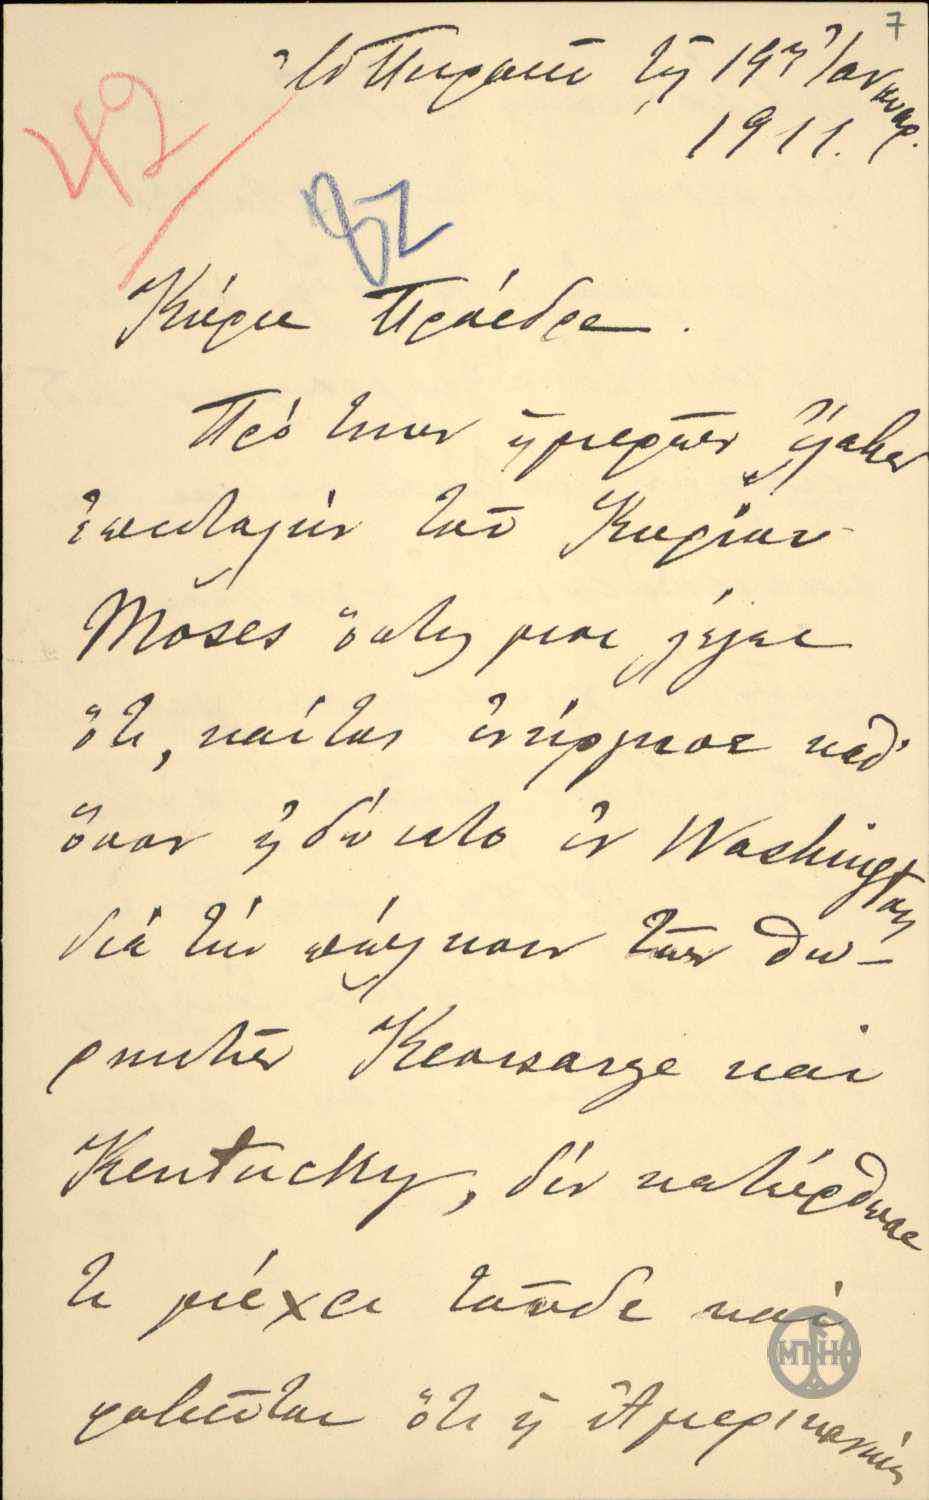 7
Ἐν Πειραιεῖ τῇ 19ῃ Ἰανουαρ.
1911.
42
82
Κύριε Πρόεδρε.
Πρό τινων ἡμερῶν ἔλαβον
ἐπιστολήν τοῦ Κυρίου
Moses ὅστις μοι λέγει
ὅτι, καίτοι ἐνήργησε καθ'
ὅσον ἠδύνατο ἐν Washington
διά τήν πώλησιν τῶν θω-
ρηκτῶν Kearsarge καί
Kentucky, δέν κατώρθωσε
τι μέχρι τοῦδε καί
φοβεῖται ὅτι ἡ Ἀμερικανική
ΜΠΗ